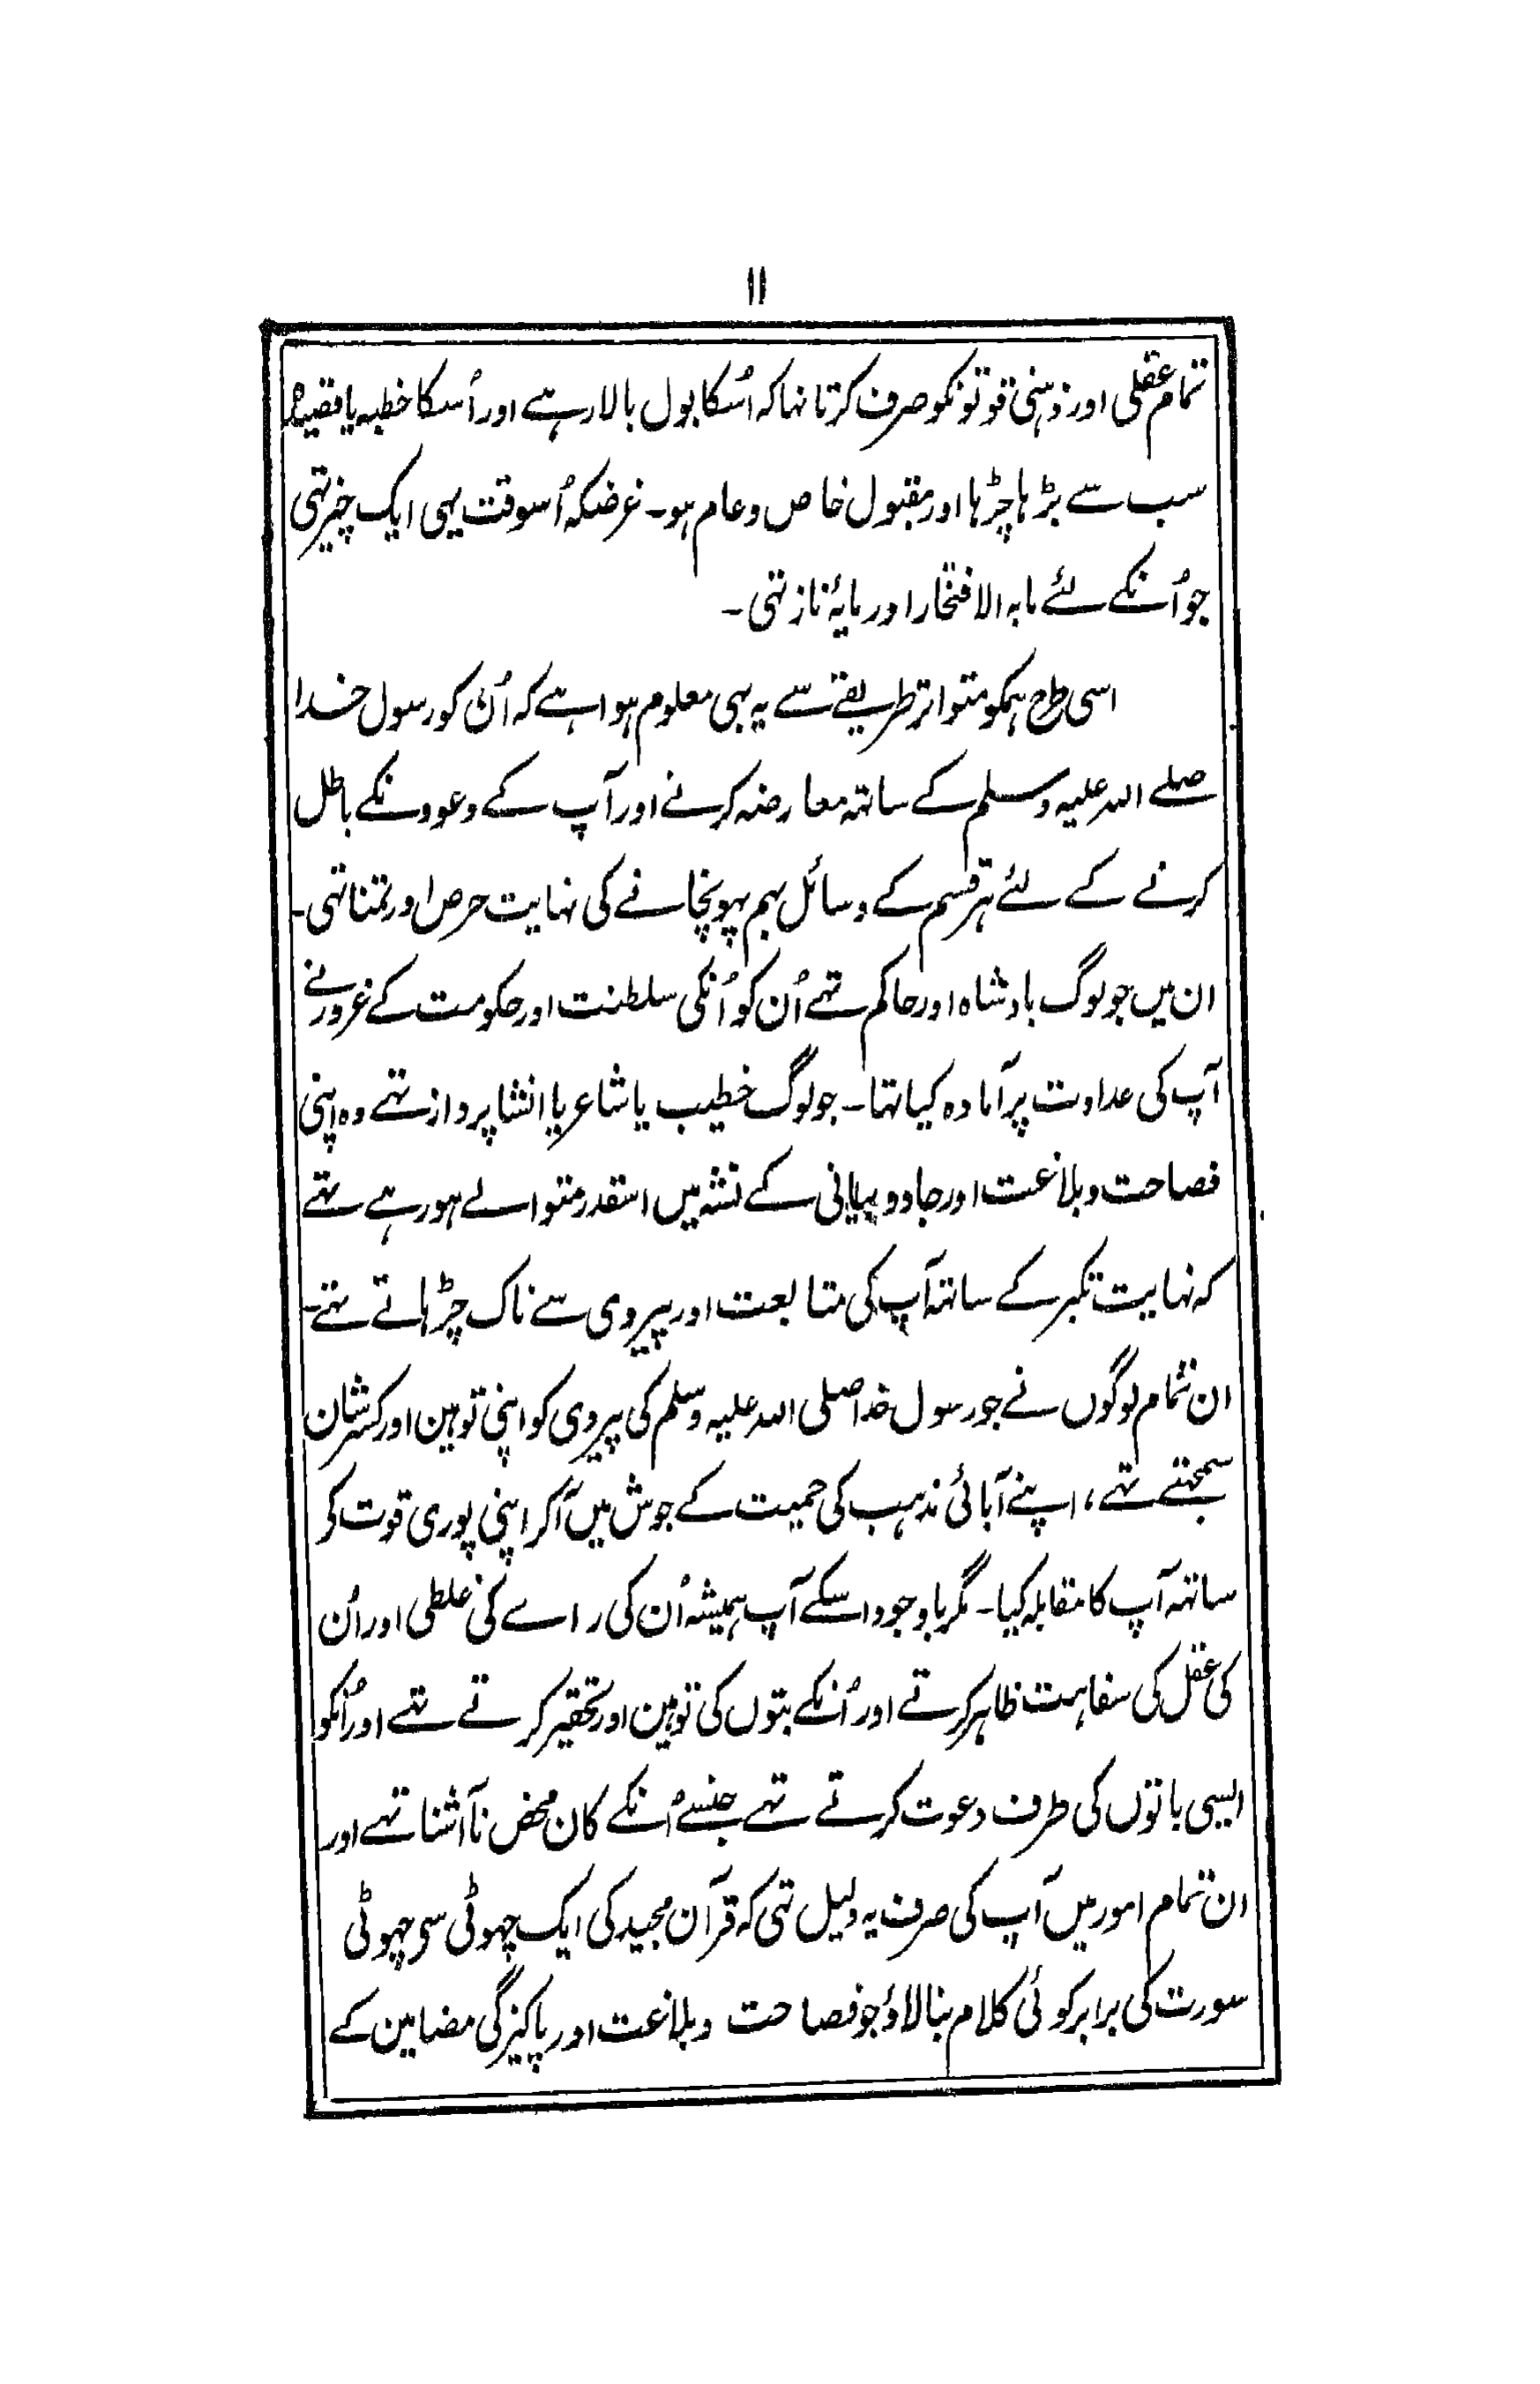 ۱۱
تمام عقلی اور ذہنی قوتونکو صرف کرتا تہا کہ اُسکا بول بالا رہے اور اُسکا خطبہ یا قصیدہ
سب سے بڑہا چڑہا اور مقبول خاص و عام ہو۔ غرضکہ اُسوقت یہی ایک چیز تہی
جو اُنکے لئے مابہ الافتخار اور مایۂ ناز تہی۔
اسی طرح ہمکو متواتر طریقے سے یہ بہی معلوم ہوا ہے کہ اُن کو رسول خدا
صلے اللہ علیہ وسلم کے ساتہ معارضہ کرنے اور آپ کے دعوونکے باطل
کرنے کے لئے ہر قسم کے وسائل بہم پہونچانے کی نہایت حرص اور تمنا تہی۔
ان میں جو لوگ بادشاہ اور حاکم تہے اُن کو اُنکی سلطنت اور حکومت کے غرور نے
آپ کی عداوت پر آمادہ کیا تہا۔ جو لوگ خطیب یا شاعر یا انشا پرداز تہے وہ اپنی
فصاحت و بلاغت اور جادو بیانی کے نشہ میں اسقدر متوالے ہو رہے تہے
کہ نہایت تکبر کے ساتہ آپ کی متابعت اور پیروی سے ناک چڑہاتے تہے۔
ان تمام لوگوں نے جو رسول خدا صلی اللہ علیہ وسلم کی پیروی کو اپنی توہین اور کسر شان
سمجہتے تہے، اپنے آبائی مذہب کی حمیت کے جوش میں آکر اپنی پوری قوت کو
ساتہ آپ کا مقابلہ کیا۔ مگر باوجود اسکے آپ ہمیشہ اُن کی راے کی غلطی اور اُن
کی عقل کی سفاہت ظاہر کرتے اور اُنکے بتوں کی توہین اور تحقیر کرتے تہے اور اُنکو
ایسی باتوں کی طرف دعوت کرتے تہے جنسے اُنکے کان محض ناآشنا تہے اور
ان تمام امور میں آپ کی صرف یہ دلیل تہی کہ قرآن مجید کی ایک چہوٹی سی چہوٹی
سورت کی برابر کوئی کلام بنا لاؤ جو فصاحت و بلاغت اور پاکیزگی مضامین کے